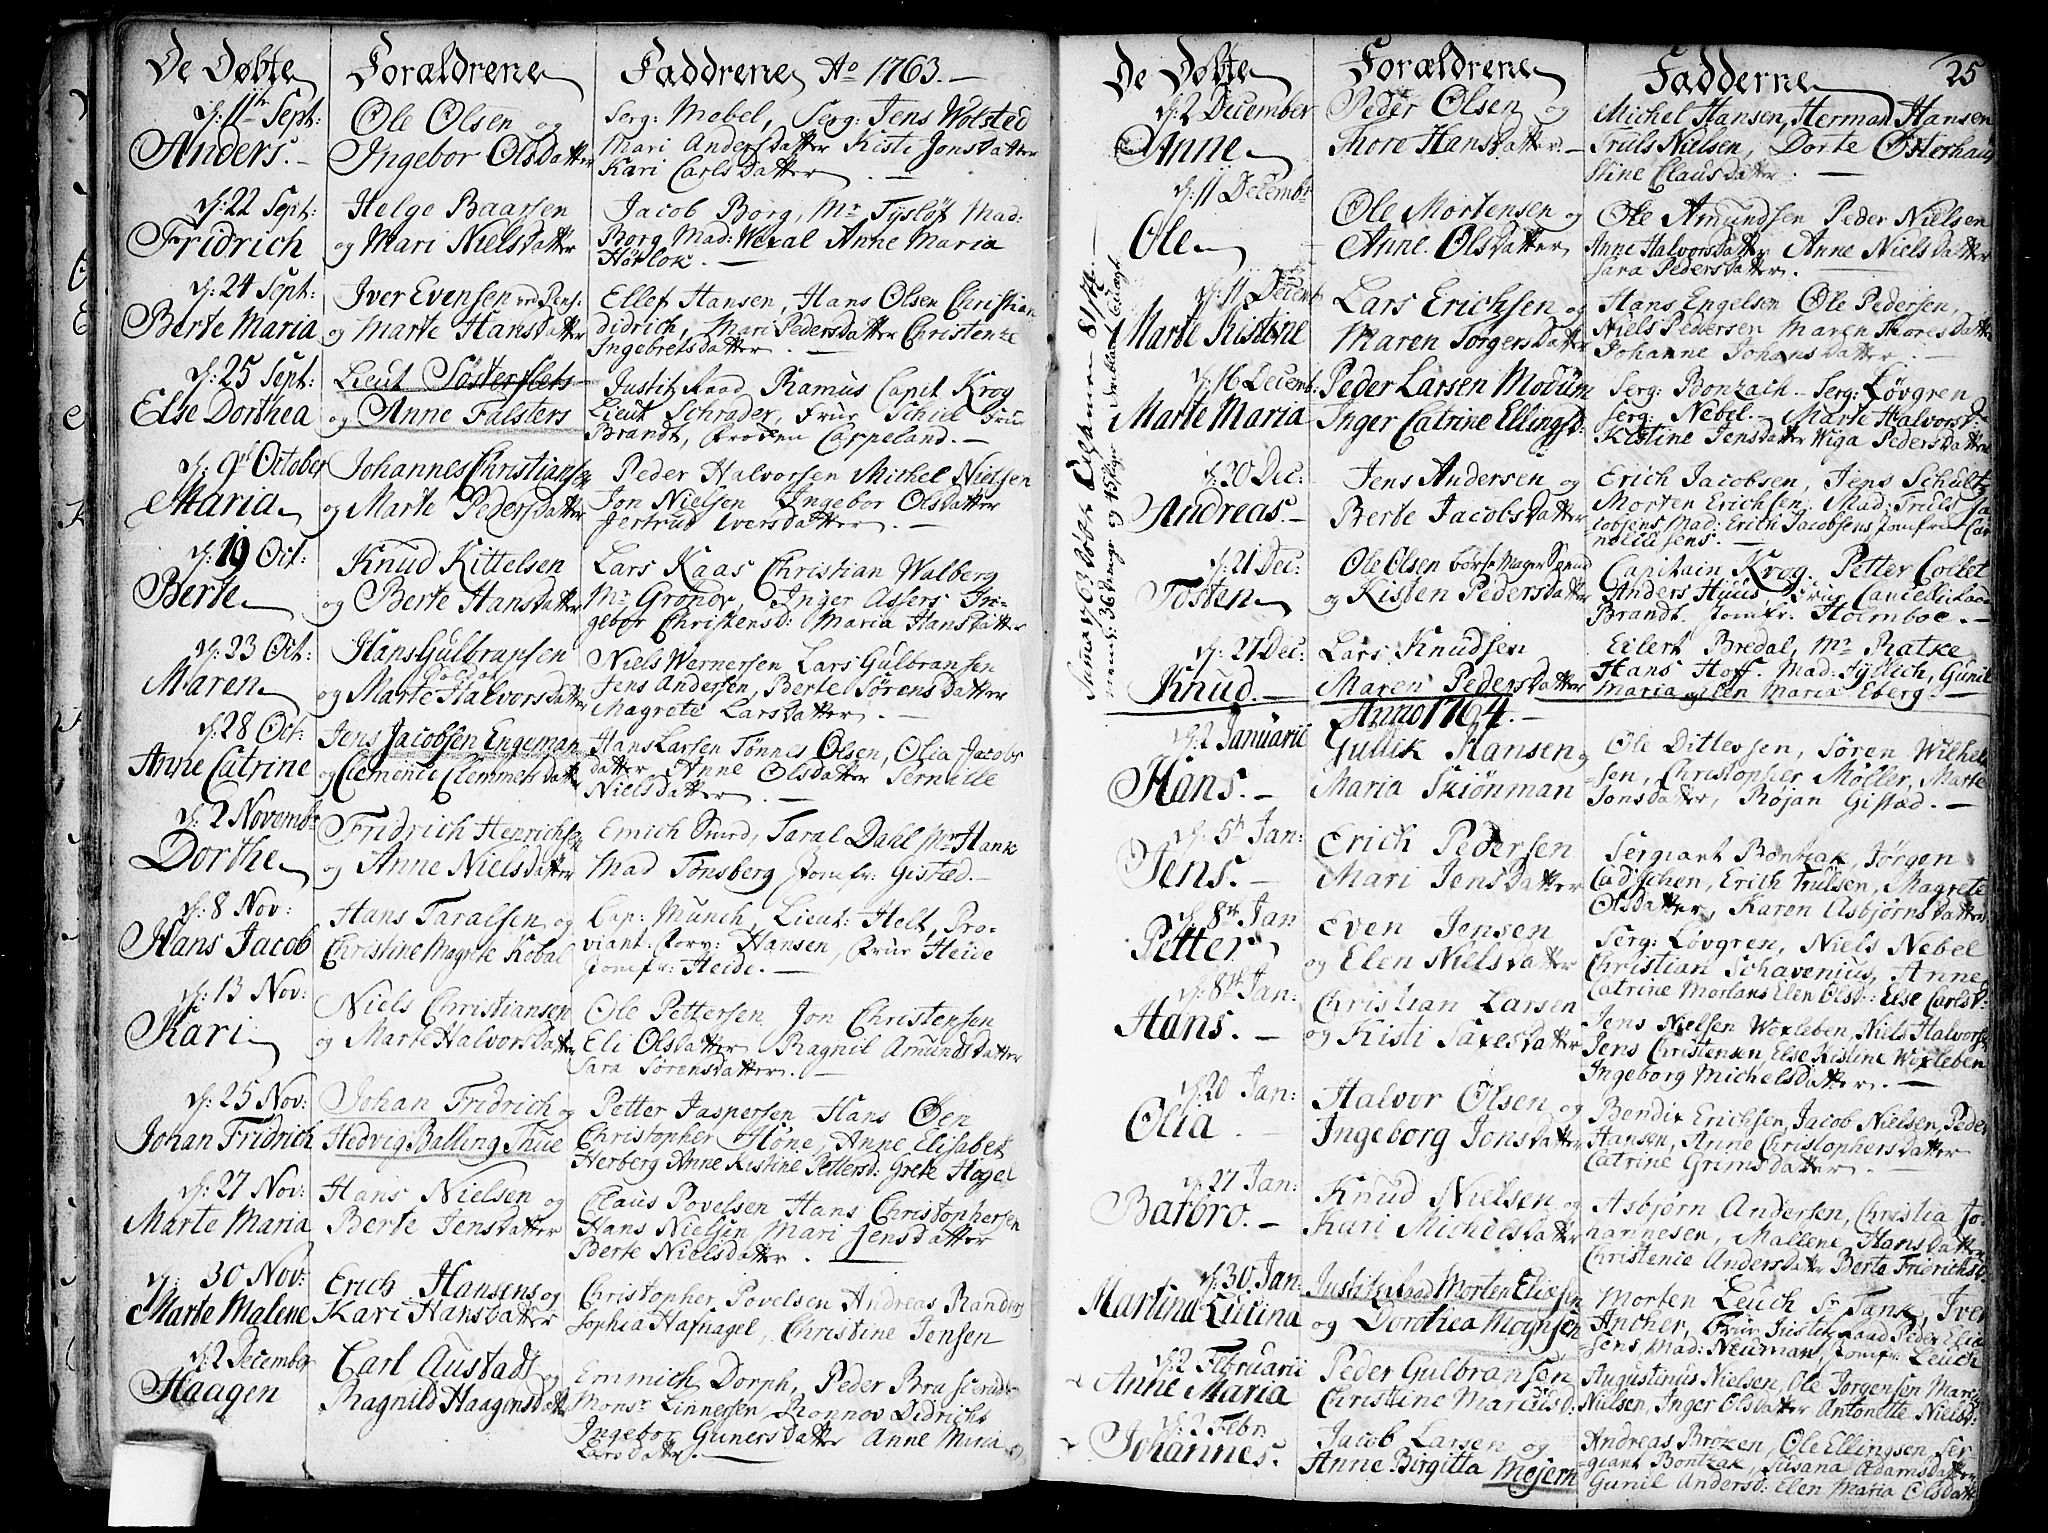 De Døbte Forældrene Faddrene Ao 1763.
d: 11te Sept:
Anders.
Ole Olsen og
Ingebor Olsdatter
Serg: Mebel, Serg: Jens Wolsted
Mari Andersdatter Kisti Jonsdatter
Kari Carlsdatter.
d: 22 Sept:
Fridrich
Helge Baarsen
og Mari Nielsdatter
Jacob Borg, Mr Tysløf Mad:
Borg Mad: Wexal Anne Maria
Hørlok.
d: 24 Sept:
Berte Maria
Iver Evensen
og Marte Hansdatter
Ellef Hansen, Hans Olsen Christian
Didrich, Mari Pedersdatter Christenze
Ingebretsdatter.
d: 25 Sept:
Else Dorthea
Lieut
og Anne Falsters
Justitz Raad Ramus Capit Krog
Lieut Schrader, Frue Schiel Frue
Brandt, Frøden Cappeland.
d: 9de October
Maria
Johannes Christiansen
og Marte Pedersdatter
Peder Halvorsen Michel Nielsen
Jon Nielsen Ingebor Olsdatter
Jertrud Iversdatter.
d: 19 Oct:
Berte
Knud Kittelsen
og Berte Hansdatter
Lars Kaas Christian Walberg
Mr Gronov, Inger Assers In-
gebor Christensd: Maria Hansdatter
d: 23 Oct:
Maren
Hans Gulbransen
og Marte Halvorsdatter
Niels Wernersen Lars Gulbransen
Jens Andersen, Berte Sørensdatter
Magrete Larsdatter.
d: 28 Oct:
Anne Catrine
Jens Jacobsen Engeman
og Clemence Clemmetsdatter
Hans Larsen Tønnes Olsen, Olia Jacobs
datter Anne Olsdatter Pernille
Nielsdatter.
d: 2 Novembr
Dorthe
Fridrich Henrichsen
og Anne Nielsdatter
Emich Smed, Taral Dahl Mr Hank
Mad Tønsberg Jomfr: Gistæd.
d: 8 Nov:
Hans Jacob
Hans Taralsen og
Christine Magrete Kobal
Cap: Munch, Lieut: Helt, Pro-
viant: Forv: Hansen, Frue Heide
Jomfr: Heide.
d: 13 Nov:
Kari
Niels Christiansen
og Marte Halvorsdatter
Ole Pettersen Jon Christensen
Eli Olsdatter Ragnil Amundsdatter
Sara Sørensdatter.
d: 25 Nov:
Johan Fridrich
Johan Fridrich og
Hedvig Balling Thue
Petter Jaspersen Hans Øen
Christopher Høne, Anne Elisabet
Herberg Anne Kistine Pettersd: Grete Hagel
d: 27 Nov:
Marte Maria
Hans Nielsen og
Berte Jensdatter
Claus Povelsen Hans Christophersen
Hans Nielsen Mari Jensdatter
Berte Nielsdatter.
d: 30 Nov:
Marte Malene
Erich Hansens og
Kari Hansdatter
Christopher Povelsen Andreas Randers
Sophia Hafnagel, Christine Jensen
d: 2 December
Haagen
Carl Austad og
Ragnild Haagensdatter
Emmich Dorph, Peder Brascerud
Monsr Linnersen Ronnov Didrichs
Ingebor Gunersdatter Anne Maria
Larsdatter.
De Døbte Forældrene Fadderne 25
d: 2 December
Anne
Peder Olsen og
Thore Hansdatter.
Michel Hansen, Herman Hansen
Truls Nielsen, Dorte Østerhaug
Stine Clausdatter.
d: 11 Decembr
Ole
Ole Mortensen og
Anne Olsdatter
Ole Amundsen Peder Nielsen
Anne Halvorsdatter Anne Nielsdatter
Sara Pedersdatter.
d: 11 Decemb
Marte Kistine
Lars Erichsen og
Maren Torgersdatter
Hans Engelsen Ole Pedersen,
Niels Pedersen Maren Thoresdatter
Johanne Johansdatter.
d: 16 Decemb:
Marte Maria
Peder Larsen Modum
Inger Catrine Ellingsd:
Serg: Bonzach - Serg: Løvgren
Serg: Nebel. Marte Halvorsd:
Kistine Jensdatter Wiga Pedersdatter
d: 20 Dec:
Andreas.
Jens Andersen og
Berte Jacobsdatter
Erich Jacobsen, Jens Schultz
Morten Erichsen. Mad: Truls Ja
cobsens Mad: Erich Jacobsens Jomfru Cor
neliusens.
d: 21 Dec:
Tosten
Ole Olsen børse Mager Svend
og Kisten Pedersdatter
Capitain Krog, Petter Collet
Anders Huus Frue Cancelie Raad
Brandt. Jomfr: Holmboe.
d: 27 Dec:
Knud.
Lars Knudsen
Maren Pedersdatter
Eilert Bredal, Mr Ratke
Hans Hoff. Mad: Tyllich, Gunil
Maria og Elen Maria Eberg.
Suma 1763 døbte
Anno 1764.
d: 2 Januarii
Hans.
Gullik Hansen og
Maria Skiønman
Ole Ditlevsen, Søren Wilhelm
sen, Christopher Møller, Marte
Jonsdatter, Røjan Gistæd.
d: 5te Jan:
Jens.
Erich Pedersen
Mari Jensdatter
Sergiant Bontzak, Jørgen
Cadschen, Erich Trulsen, Magrete
Olsdatter, Karen Asbjørnsdatter
d: 8de Jan
Petter
Even Jensen
og Elen Nielsdatter
Serg: Løvgren, Niels Nebel
Christian Schavenius, Anne
Catrine Mortans Elen Olsd: Else Carlsd:
d: 8de Jan:
Hans.
Christian Larsen
og Kisti Saxesdatter
Jens Nielsen Woxleben, Niels Halvorsen
Jens Christensen, Else Kistine Woxleben
Ingeborg Michelsdatter.
d: 20 Jan:
Olia
Halvor Olsen og
Ingeborg Jonsdatter
Bendix Erichsen, Jacob Nielsen, Peder
Hansen, Anne Christophersdatter
Catrine Grimsdatter.
d: 27 Jan:
Barbro.
Knud Nielsen og
Kari Michelsdatter
Asbjørn Andersen, Christia Jo-
hannesen, Mallene Hansdatter
Christence Andersdatter Berte Fridrichsd:
d: 30 Jan:
Martina Lucina
Justitz Raad Morten Eliesen
og Dorothea Monsen
Morten Leuch Sr Tank, Iver
Ancher, Frue Justitz Raad Peder Elie
sens, Mad: Neuman, Jomfr: Leuch
d: 2 Februarii
Anne Maria
Peder Gulbransen
Christine Marcusd:
Augustinus Nielsen, Ole Jørgensen Maria
Nielsen, Inger Olsdatter Antonette Nielsd:
d: 2 Febr:
Johannes.
Jacob Larsen og
Anne Birgitta Mejern
Andreas Brozen, Ole Ellingsen, Ser
giant Bontzak, Susana Adamsdatter
Gunil Andersd: Elen Maria Olsdatter